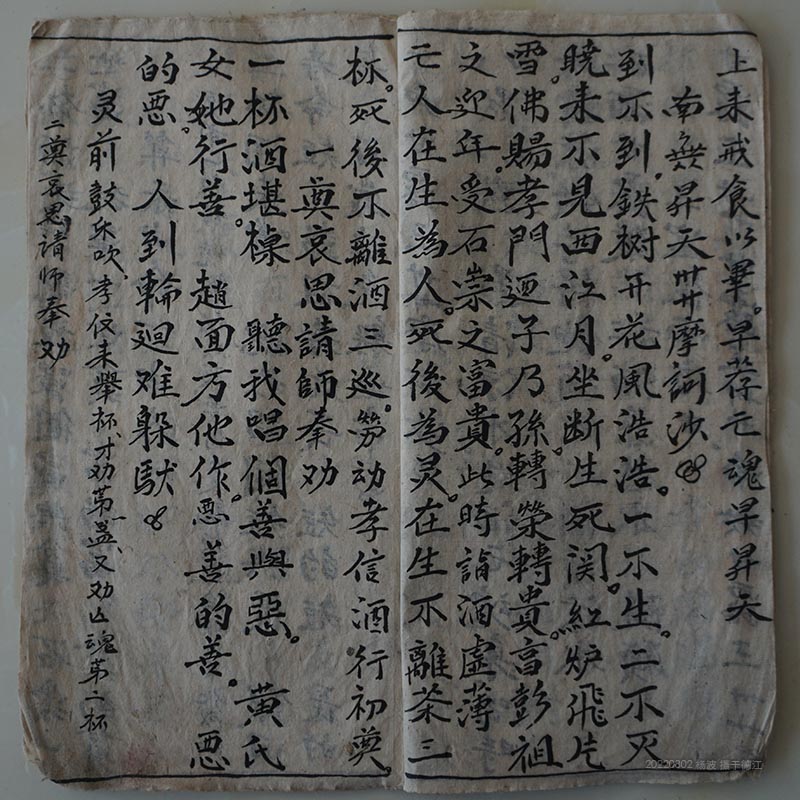 上来戒食以畢。早荐亡魂早昇天
南無昇天卅卅摩訶沙
到不到。鉄树开花風浩浩。一不生。二不灭
曉来不見西江月。坐断生死関。紅炉飛片
雪。佛賜孝門迎子乃孫。轉榮轉貴。畗彭祖
之迎年。受石崇之富貴。此時詣酒虚薄
亡人在生為人。死後為灵。在生不離茶三
杯。死後不離酒三巡。劳动孝信酒行初奠。
一奠哀思請師奉劝
一杯酒堪樽 聽我唱個善與惡。黄氏
女她行善。趙面方他作悪。善的善。悪
的悪。人到輪迴难躲馱
灵前鼓乐吹、孝伩来舉杯、才劝第一盃、又劝亾魂第二杯
二奠哀思請师奉劝
20220302 杨波 摄于德江